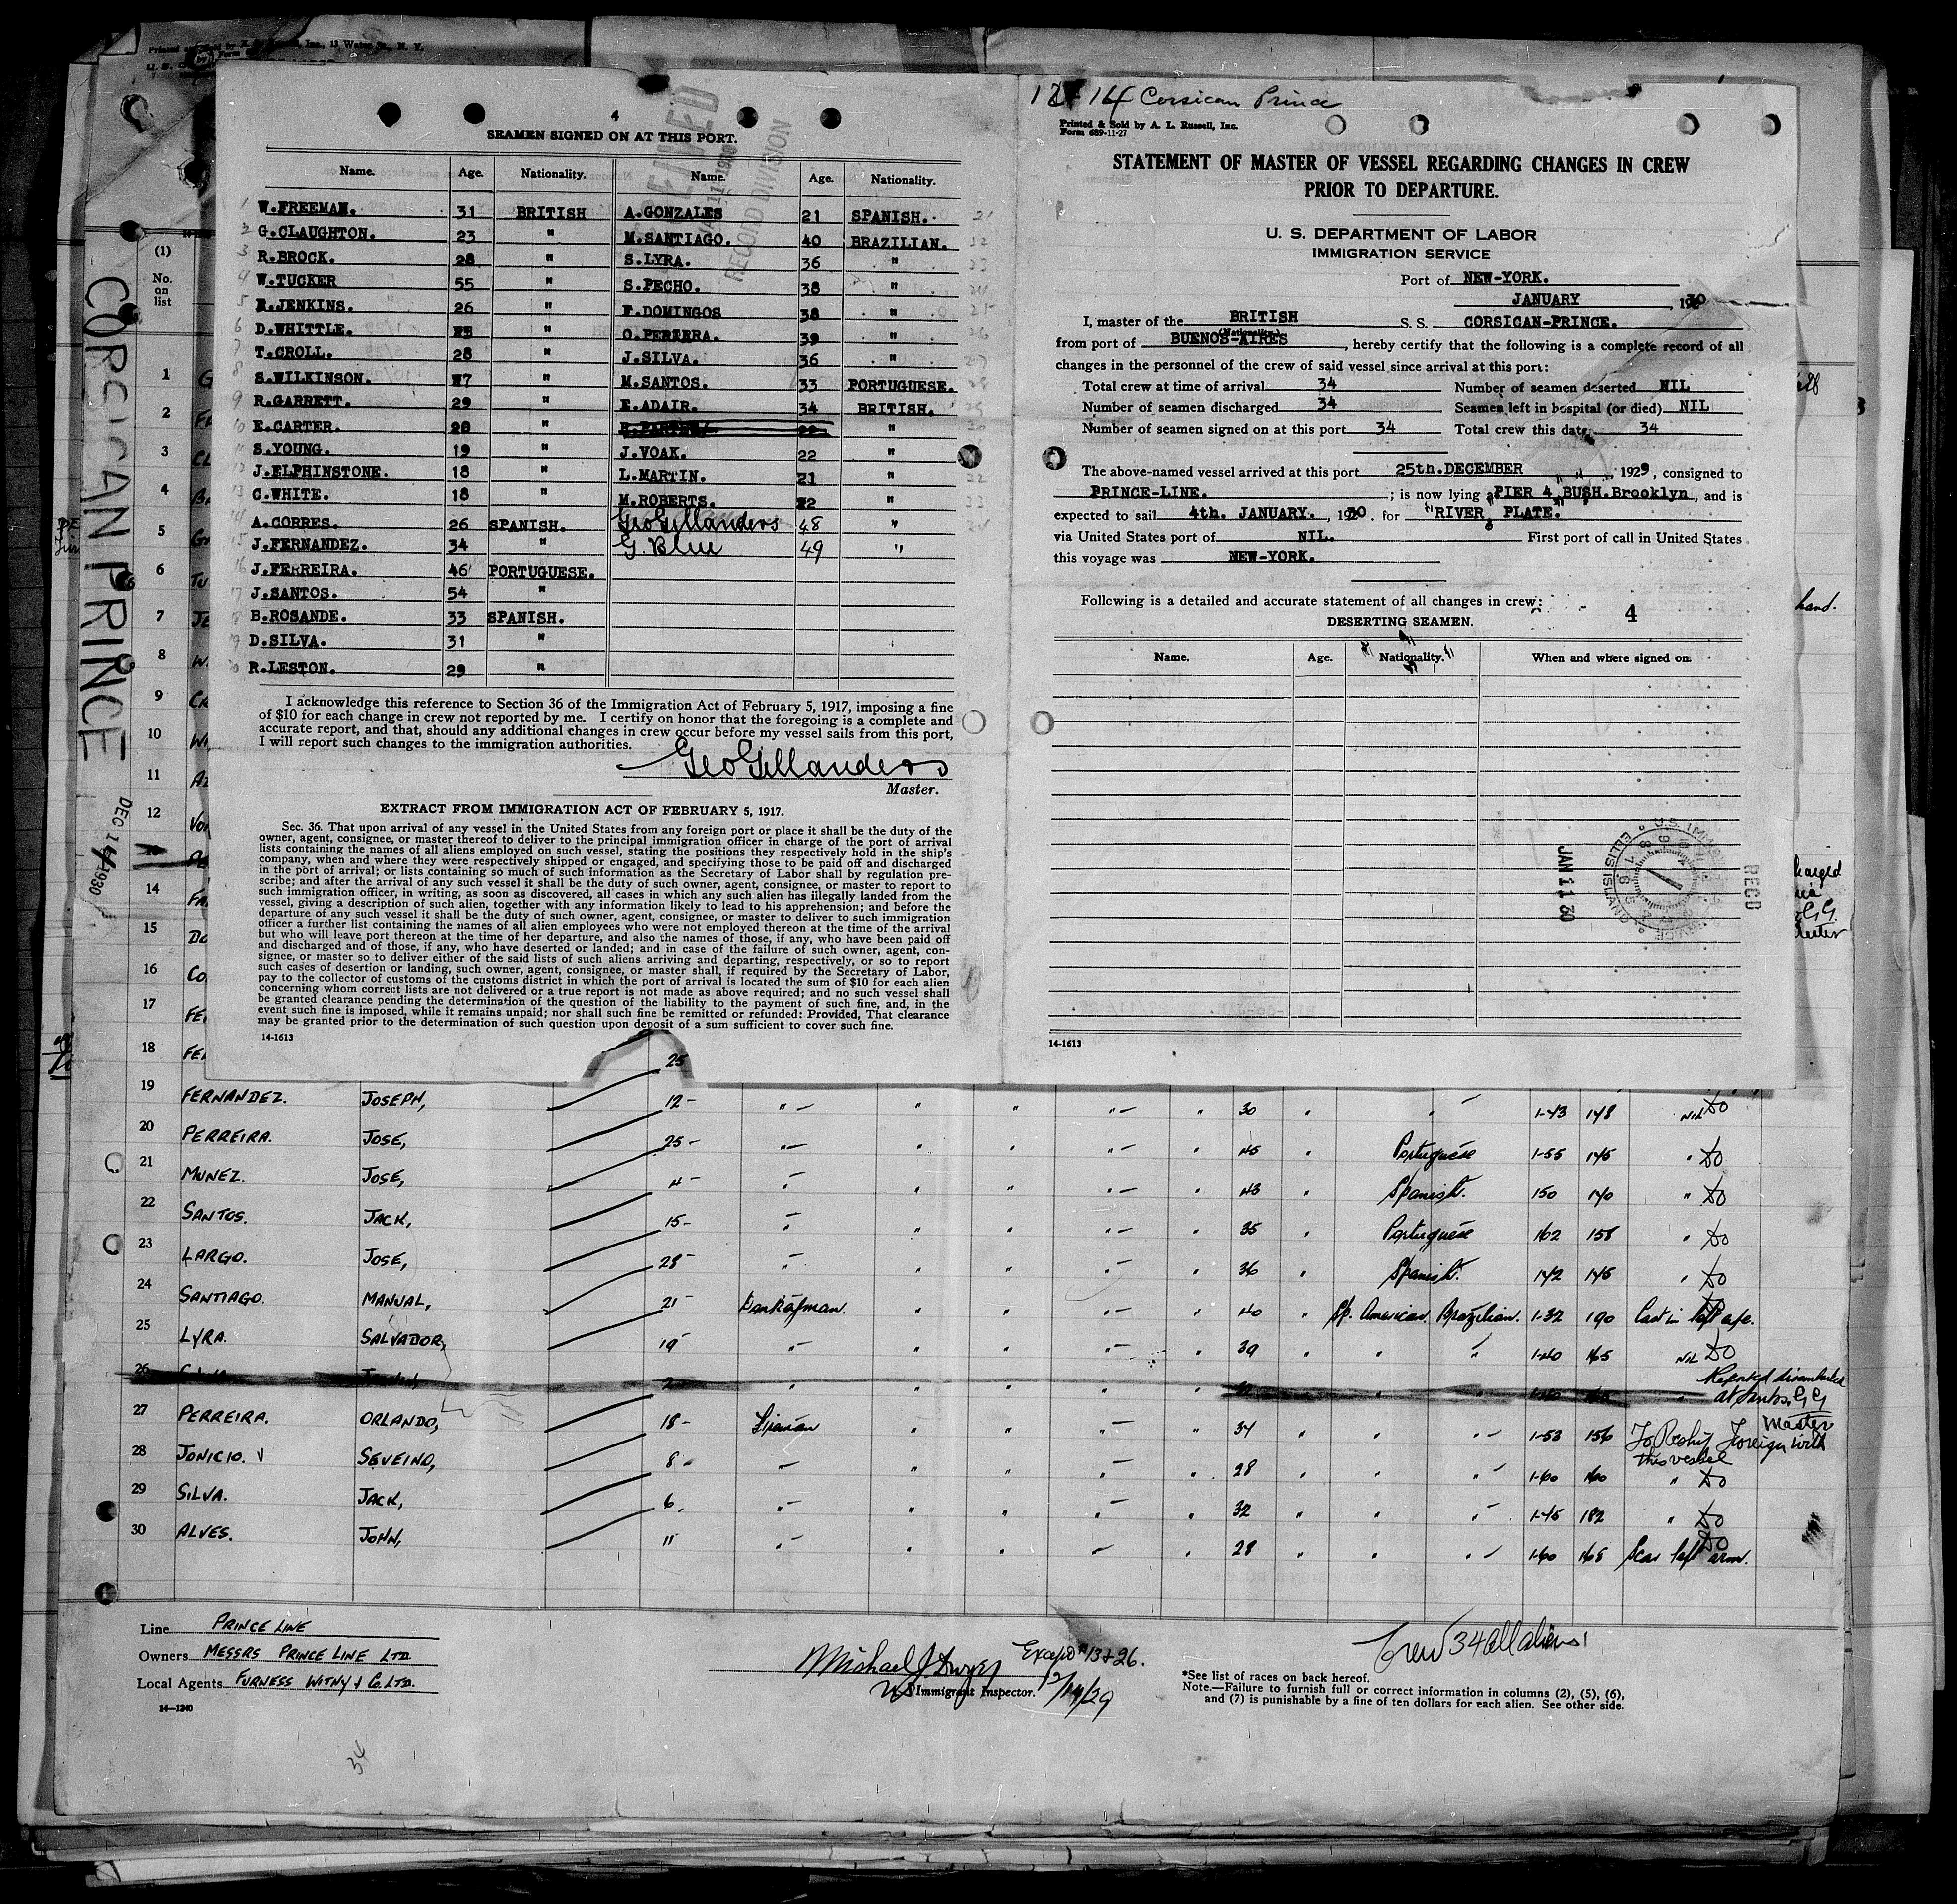 Printed and Sold by Inc., 13 Water St., N. Y.
CORSICAN PRINCE
(1)
No.
on
list
4
SEAMEN SIGNED ON AT THIS PORT.
Name. Age. Nationality. Name. Age. Nationality.
1 W.FREEMAN. 31 BRITISH A.GONZALES 21 SPANISH. 21
2 G.CLAUGHTON. 23 " M.SANTIAGO. 40 BRAZILIAN.
3 R.BROCK. 28 " S.LYRA. 36 " 23
4 W.TUCKER 55 " S.PECHO. 38 " 24
5 JENKINS. 26 " F.DOMINGOS 38 " 25
6 D.WHITTLE. " O.PERERRA. 39 " 26
7 T.CROLL. 28 " J.SILVA. 36 "
8 S.WILKINSON. " M.SANTOS. 33 PORTUGUESE.
9 R.GARRETT. 29 " E.ADAIR. 34 BRITISH.
10 E.CARTER. 20 " "
S.YOUNG. 19 " J.VOAK. 22 "
12 J.ELPHINSTONE. 18 " L.MARTIN. 21 "
13 C.WHITE. 18 " M.ROBERTS. "
14 A.CORRES. 26 SPANISH. Geo Gillanders 48 "
15 J.FERNANDEZ. 34 " G. Blue 49 "
16 J.FERREIRA. 46 PORTUGUESE.
17 J.SANTOS. 54 "
B.ROSANDE. 33 SPANISH.
D.SILVA. 31 "
R.LESTON. 29 "
I acknowledge this reference to Section 36 of the Immigration Act of February 5, 1917, imposing a fine
of $10 for each change in crew not reported by me. I certify on honor that the foregoing is a complete and
accurate report, and that, should any additional changes in crew occur before my vessel sails from this port,
I will report such changes to the immigration authorities.
Geo Gillanders
Master.
EXTRACT FROM IMMIGRATION ACT OF FEBRUARY 5, 1917.
Sec. 36. That upon arrival of any vessel in the United States from any foreign port or place it shall be the duty of the
owner, agent, consignee, or master thereof to deliver to the principal immigration officer in charge of the port of arrival
lists containing the names of all aliens employed on such vessel, stating the positions they respectively hold in the ship's
company, when and where they were respectively shipped or engaged, and specifying those to be paid off and discharged
in the port of arrival; or lists containing so much of such information as the Secretary of Labor shall by regulation pre-
scribe; and after the arrival of any such vessel it shall be the duty of such owner, agent, consignee, or master to report to
such immigration officer, in writing, as soon as discovered, all cases in which any such alien has illegally landed from the
vessel, giving a description of such alien, together with any information likely to lead to his apprehension; and before the
departure of any such vessel it shall be the duty of such owner, agent, consignee, or master to deliver to such immigration
officer a further list containing the names of all alien employees who were not employed thereon at the time of the arrival
but who will leave port thereon at the time of her departure, and also the names of those, if any, who have been paid off
and discharged and of those, if any, who have deserted or landed; and in case of the failure of such owner, agent, con-
signee, or master so to deliver either of the said lists of such aliens arriving and departing, respectively, or so to report
such cases of desertion or landing, such owner, agent, consignee, or master shall, if required by the Secretary of Labor,
pay to the collector of customs of the customs district in which the port of arrival is located the sum of $10 for each alien
concerning whom correct lists are not delivered or a true report is not made as above required; and no such vessel shall
be granted clearance pending the determination of the question of the liability to the payment of such fine, and, in the
event such fine is imposed, while it remains unpaid; nor shall such fine be remitted or refunded: Provided, That clearance
may be granted prior to the determination of such question upon deposit of a sum sufficient to cover such fine.
14-1613
RECORD DIVISION
14 Corsican Prince
Printed & Sold by A. L. Russell, Inc.
Form 689-11-27
STATEMENT OF MASTER OF VESSEL REGARDING CHANGES IN CREW
PRIOR TO DEPARTURE.
U. S. DEPARTMENT OF LABOR
IMMIGRATION SERVICE
Port of NEW-YORK.
JANUARY , 1930
I, master of the BRITISH S. S. CORSICAN-PRINCE.
(Nationality.)
from port of BUENOS-AIRES , hereby certify that the following is a complete record of all
changes in the personnel of the crew of said vessel since arrival at this port:
Total crew at time of arrival 34 Number of seamen deserted NIL
Number of seamen discharged 34 Seamen left in hospital (or died) NIL
Number of seamen signed on at this port 34 Total crew this date 34
The above-named vessel arrived at this port 25th.DECEMBER , 1929, consigned to
PRINCE-LINE. ; is now lying PIER 4 BUSH.Brooklyn, and is
expected to sail 4th. JANUARY. , 1930. for "RIVER PLATE.
via United States port of NIL. First port of call in United States
this voyage was NEW-YORK.
Following is a detailed and accurate statement of all changes in crew:
4
DESERTING SEAMEN.
Name. Age. Nationality. When and where signed on.
JAN 11 30
U.S. IMMIGRATION SERVICE ELLIS ISLAND
REC'D
14-1613
DEC 14 1930
1
2
3
4
5
6
7
8
9
10
11
12
14
15
16
17
18 25
19 FERNANDEZ. JOSEPH, 12- " " " " " 30 " " 1-43 148 NIL DO
20 PERREIRA. JOSE, 25- " " " " " 45 " Portuguese 1-55 145 " DO
21 MUNEZ. JOSE, 4- " " " " " 43 " Spanish. 150 140 " DO
22 SANTOS. JACK, 15- " " " " " 35 " Portuguese 162 158 " DO
23 LARGO. JOSE, 28- " " " " " 36 " Spanish. 142 145 " DO
24 SANTIAGO. MANUAL, 21- Donkeyman. " " " " 40 " Sp. American. Brazilian. 1-32 190 Cast in left eye. DO
25 LYRA. SALVADOR, 19- " " " " " 39 " " " 1-40 165 NIL DO
26
Reported disembarked
at Santos GG
Master
27 PERREIRA. ORLANDO, 18- Fireman " " " " 34 " " " 1-53 156 To Reship Foreign with
this vessel
28 JONICIO. SEVEIND, 8- " " " " " 28 " " " 1-60 160 " DO
29 SILVA. JACK, 6. " " " " " 32 " " " 1-45 182 " DO
30 ALVES. JOHN, 11 " " " " " 28 " " " 1-60 168 Scar left arm. DO
Line PRINCE LINE
Owners MESSRS PRINCE LINE LTD
Local Agents FURNESS WITHY & Co. LTD.
14-1240
34
Michael J. Dwyer Except #13+26.
US Immigrant Inspector. 12/14/29
Crew 34 all aliens
*See list of races on back hereof.
Note.—Failure to furnish full or correct information in columns (2), (5), (6),
and (7) is punishable by a fine of ten dollars for each alien. See other side.